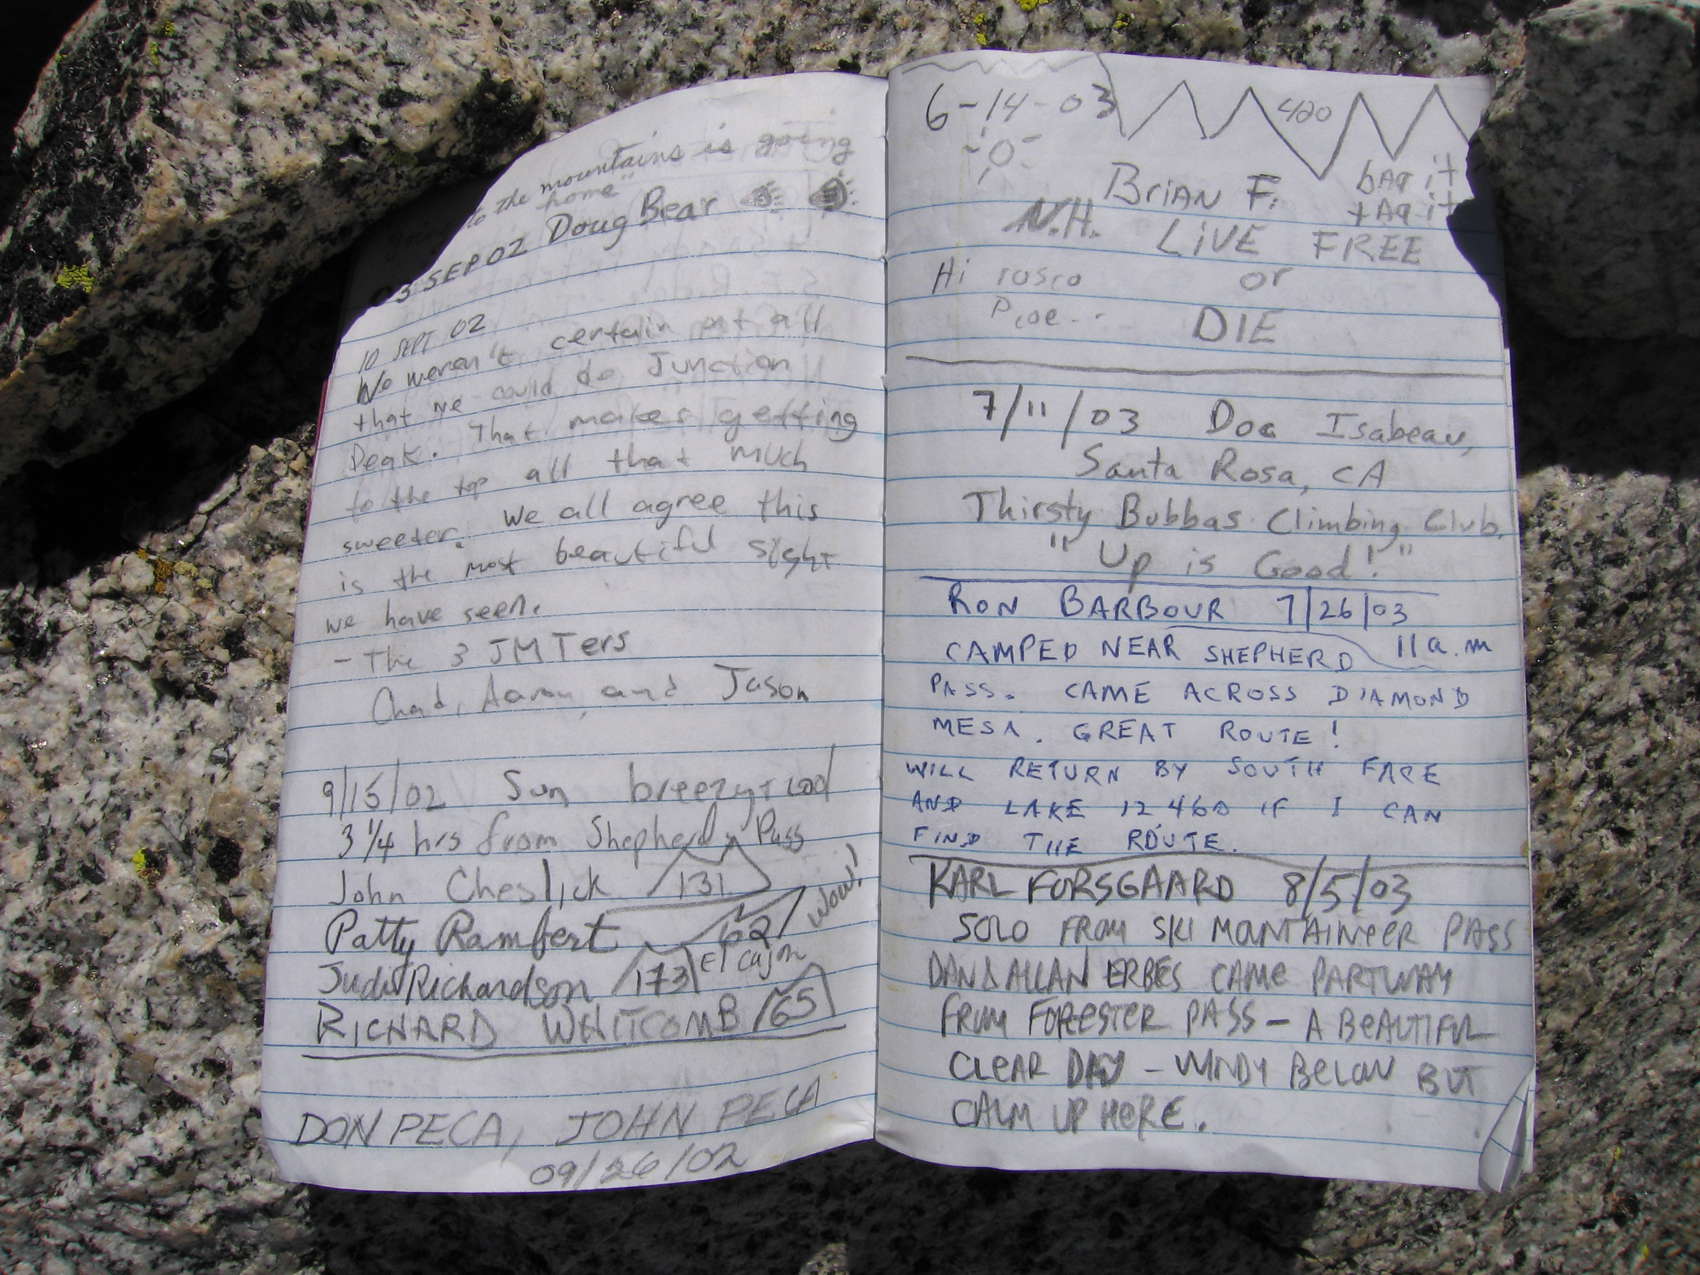 to the mountains is going
home"
3 SEP 02 Doug Bear
10 SEPT 02
We weren't certain at all
that we could do Junction
Peak. That makes getting
to the top all that much
sweeter. We all agree this
is the most beautiful sight
we have seen.
- The 3 JMTers
Chad, Aaron, and Jason
9/15/02 Sun breezy + cool
3 1/4 hrs from Shepherd Pass
John Cheslick 131
Patty Rambert 62 Wow!
Judi Richardson 173 El Cajon
RICHARD WHITCOMB 65
DON PECA, JOHN PECA
09/26/02
6-14-03 420
BRIAN F. bag it
tag it
N.H. LIVE FREE
Hi rosco or
DIE
7/11/03 Doc Isabeau,
Santa Rosa, CA
Thirsty Bubbas Climbing Club,
"Up is Good!"
RON BARBOUR 7/26/03
CAMPED NEAR SHEPHERD 11 a.m
PASS. CAME ACROSS DIAMOND
MESA. GREAT ROUTE!
WILL RETURN BY SOUTH FACE
AND LAKE 12,460 IF I CAN
FIND THE ROUTE.
KARL FORSGAARD 8/5/03
SOLO FROM SKI MOUNTAINEER PASS
DAN & ALLAN ERBES CAME PARTWAY
FROM FORESTER PASS - A BEAUTIFUL
CLEAR DAY - WINDY BELOW BUT
CALM UP HERE.